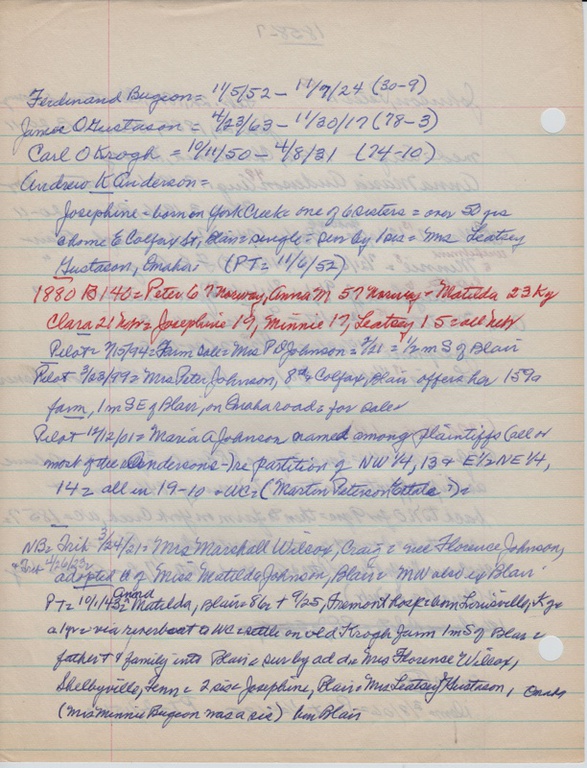 1858-7
Ferdinand Bugeon = 11/5/52 - 11/7/24 (30-9)
James O Gustason = 4/23/63 - 11/30/17 (78-3)
Carl O Krogh = 10/11/50 - 4/8/31 (74-10)
Andrew K Anderson =
Josephine - born on York Creek = one of 6 sisters = over 50 yrs
a home E Colfax St, Blair = single = surv by 1 sis = Mrs Leatsey
Gustason, Omaha (PT = 11/6/52)
1880 B 140 = Peter 67 Norway, Anna M 57 Norway - Matilda 23 Ky
Clara 21 Neb = Josephine 19, Minnie 17, Leatsey 15 = all Neb
Pilot = 7/5/94 = Farm sale = Mrs P O Johnson = 7/21 = 1/2 m S of Blair
Pilot 3/23/99 = Mrs Peter Johnson, 8th & Colfax, Blair offers her 159a
farm, 1 m SE of Blair, on Omaha road = for sale
Pilot 12/12/01 = Maria A Johnson named among plaintiffs (all or
most of these Andersons -) re partition of NW 1/4, 13 & E 1/2 NE 1/4,
14 = all in 19-10 = WC = (Marton Peterson Estate ?) =
NB = Trib 3/24/21 = Mrs Marshall Wilcox, Craig = nee Florence Johnson,
" Trib 4/26/23 =
adopted d of Miss Matilda Johnson, Blair = MW also ex Blair
PT = 10/1/43 = Matilda, Blair = 86 = + 9/25, Fremont hosp = born Louisville, Ky =
a 1 yr = via riverboat a WC = settle on old Krogh farm 1 m S of Blair =
father + & family into Blair = sur by ad d = Mrs Florence Wilcox,
Shelbyville, Tenn = 2 sis = Josephine, Blair = Mrs Leatsey Gustason, Omaha
(Mrs Minnie Bugeon was a sis) bur Blair